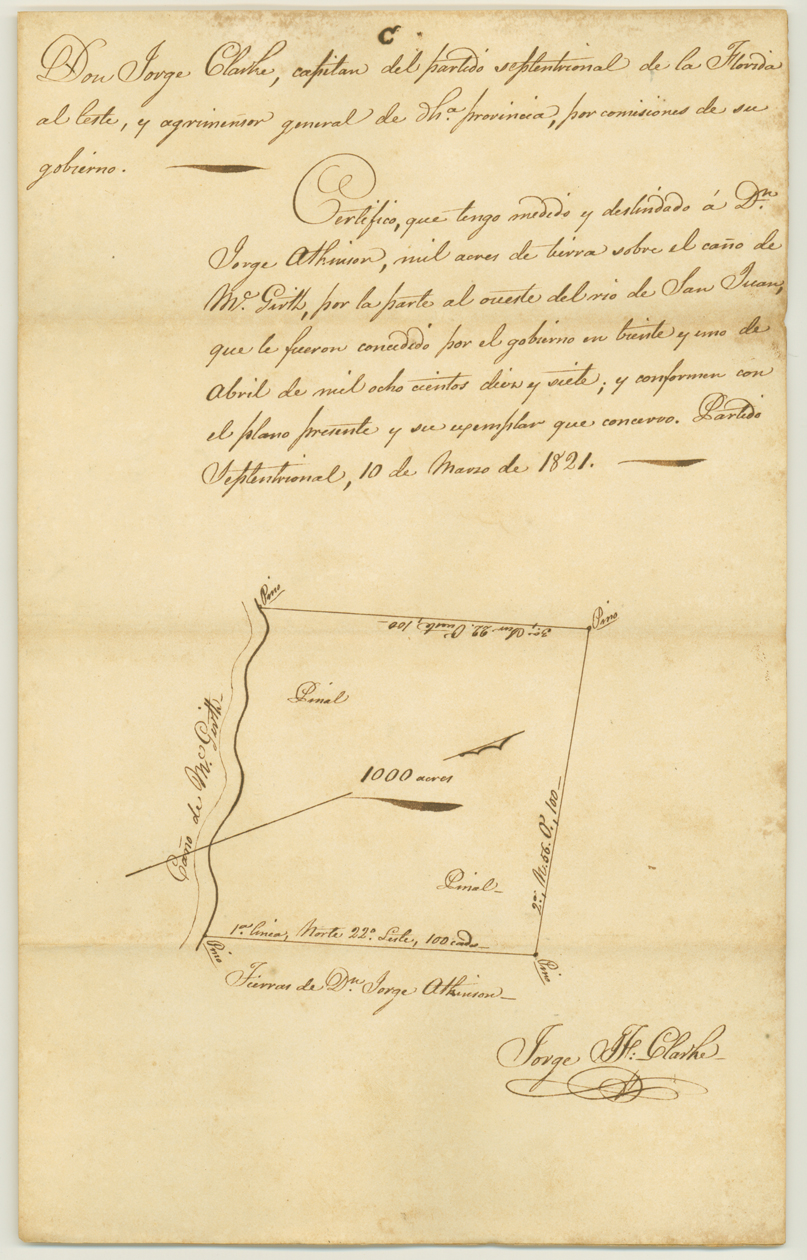 C.
Don Jorge Clarke, capitan del partido septentrional de la Florida
al leste, y agrimensor general de dha. provincia, por comisiones de su
gobierno.
Certifico, que tengo medido y deslindado á Dn.
Jorge Atkinson, mil acres de tierra sobre el caño de
Mc. Girth, por la parte al oueste del rio de San Juan,
que le fueron concedido por el gobierno en viente y uno de
Abril de mil ocho cientos diez y siete; y conformen con
el plano presente y su exemplar que concervo. Partido
Septentrional, 10 de Marzo de 1821.
Pino
Pino
3a., Sur 22. Oueste, 100
Pinal
Caño de Mc. Girth
1000 acres
2a., N. 56. O., 100
Pinal
1a. linea, Norte 22°. Leste, 100 cads.
Pino
Pino
Tierras de Dn. Jorge Atkinson
Jorge J. F. Clarke